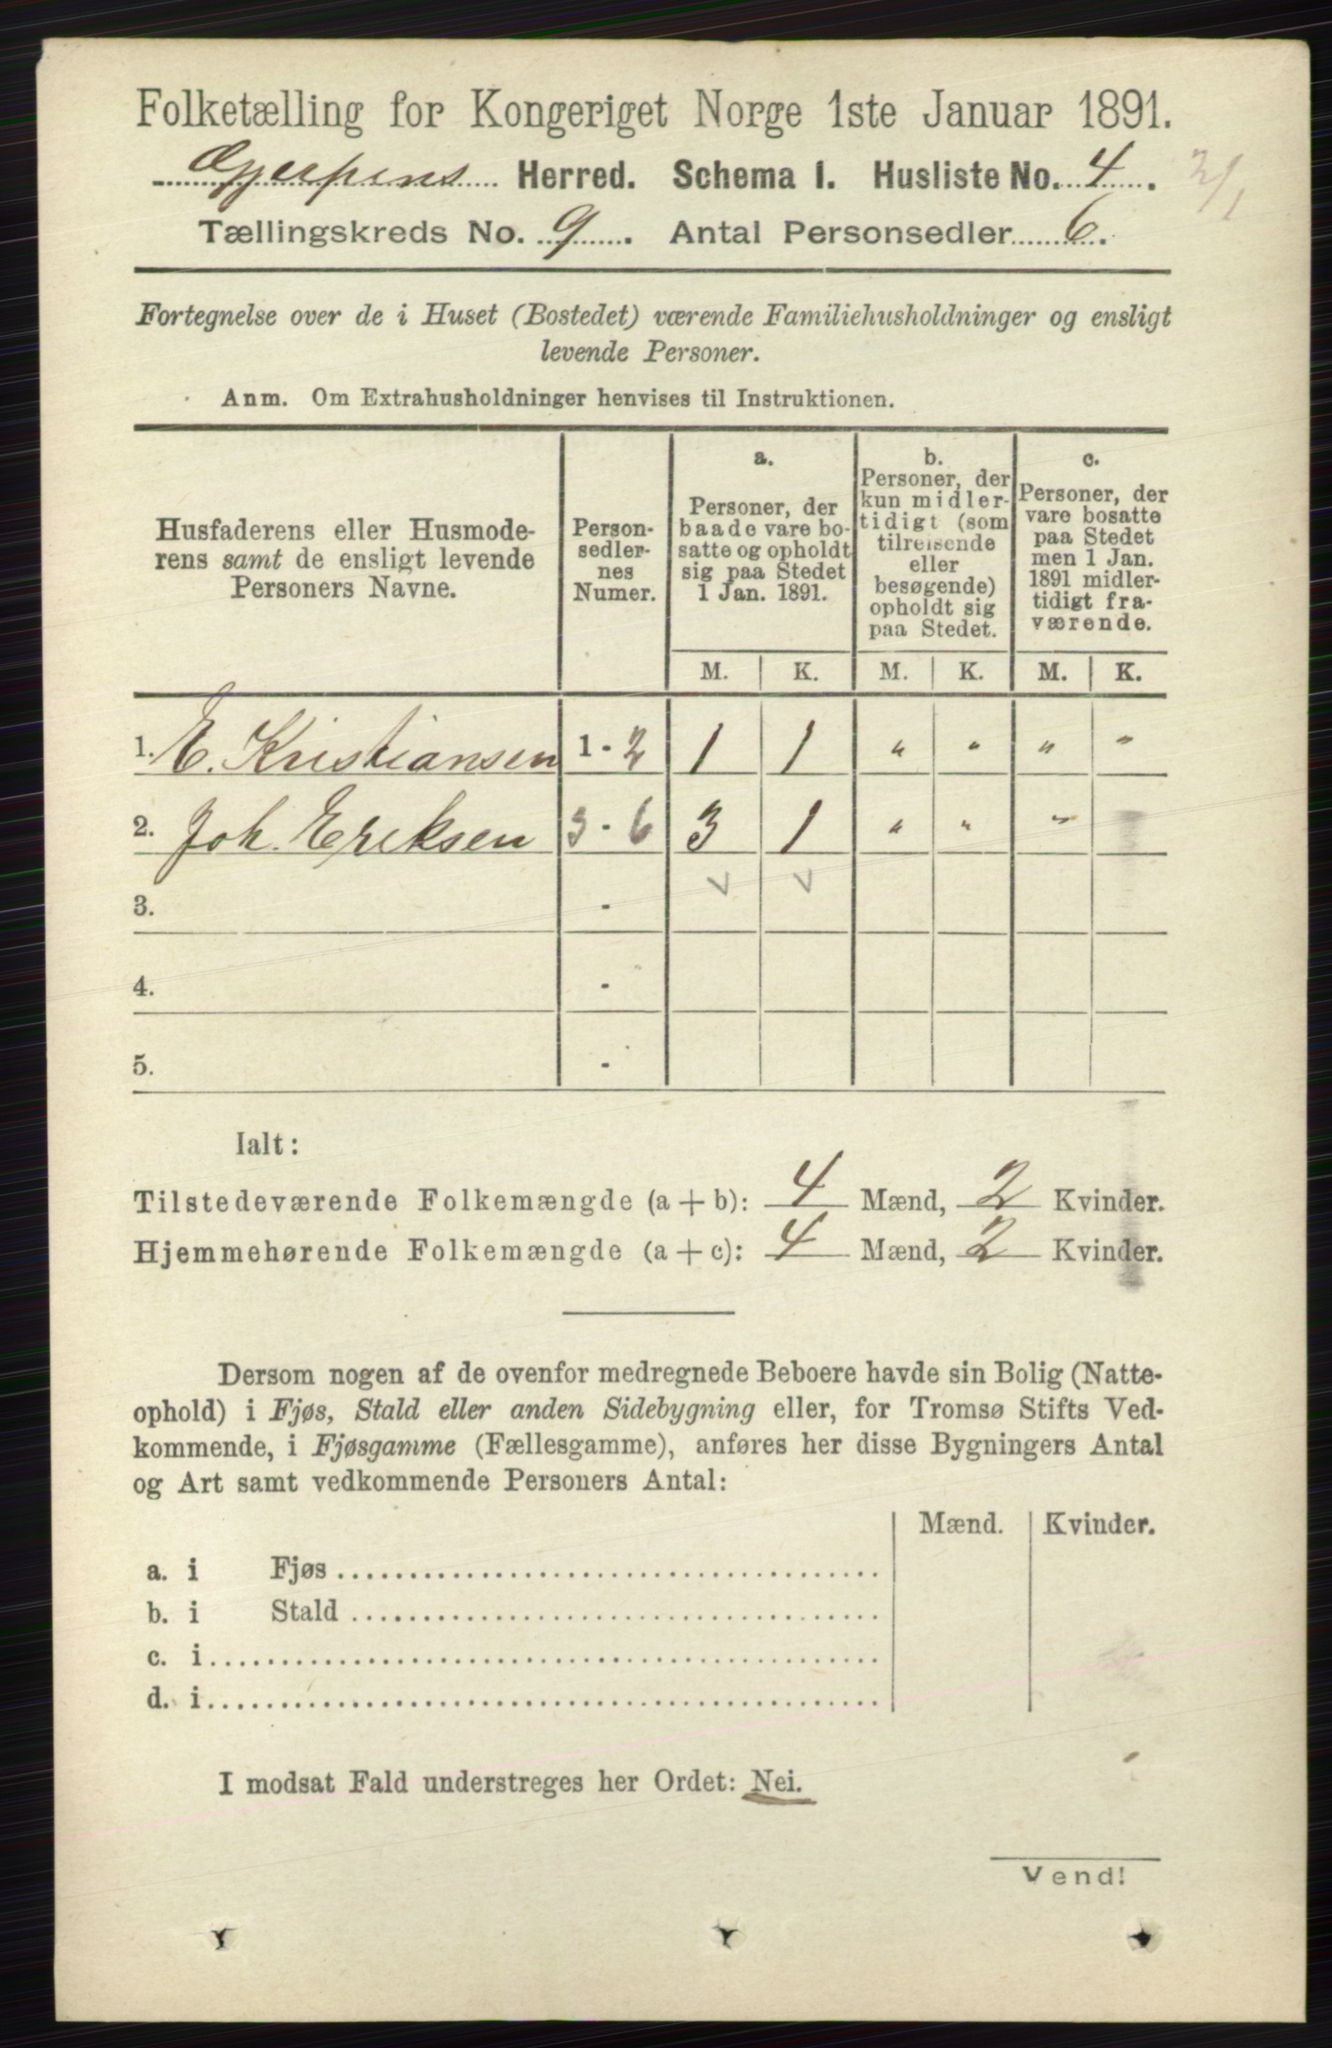 Folketælling for Kongeriget Norge 1ste Januar 1891.
Gjerpens Herred. Schema I. Husliste No. 4. 2/1
Tællingskreds No. 9. Antal Personsedler 6.
Fortegnelse over de i Huset (Bostedet) værende Familiehusholdninger og ensligt
levende Personer.
Anm. Om Extrahusholdninger henvises til Instruktionen.
Husfaderens eller Husmode-
rens samt de ensligt levende
Personers Navne.
Person-
sedler-
nes
Numer.
a.
Personer, der
baade vare bo-
satte og opholdt
sig paa Stedet
1 Jan. 1891.
b.
Personer, der
kun midler-
tidigt (som
tilreisende
eller
besøgende)
opholdt sig
paa Stedet.
c.
Personer, der
vare bosatte
paa Stedet
men 1 Jan.
1891 midler-
tidigt fra-
værende.
M. K. M. K. M. K.
1. E. Kristiansen 1 - 2 1 1 " " " "
2. Joh. Eriksen 3 - 6 3 1 " " "
3. -
4. -
5. -
Ialt:
Tilstedeværende Folkemængde (a + b): 4 Mænd, 2 Kvinder.
Hjemmehørende Folkemængde (a + c): 4 Mænd, 2 Kvinder.
Dersom nogen af de ovenfor medregnede Beboere havde sin Bolig (Natte-
ophold) i Fjøs, Stald eller anden Sidebygning eller, for Tromsø Stifts Ved-
kommende, i Fjøsgamme (Fællesgamme), anføres her disse Bygningers Antal
og Art samt vedkommende Personers Antal:
Mænd. Kvinder.
a. i Fjøs
b. i Stald
c. i
d. i
I modsat Fald understreges her Ordet: Nei.
Vend!